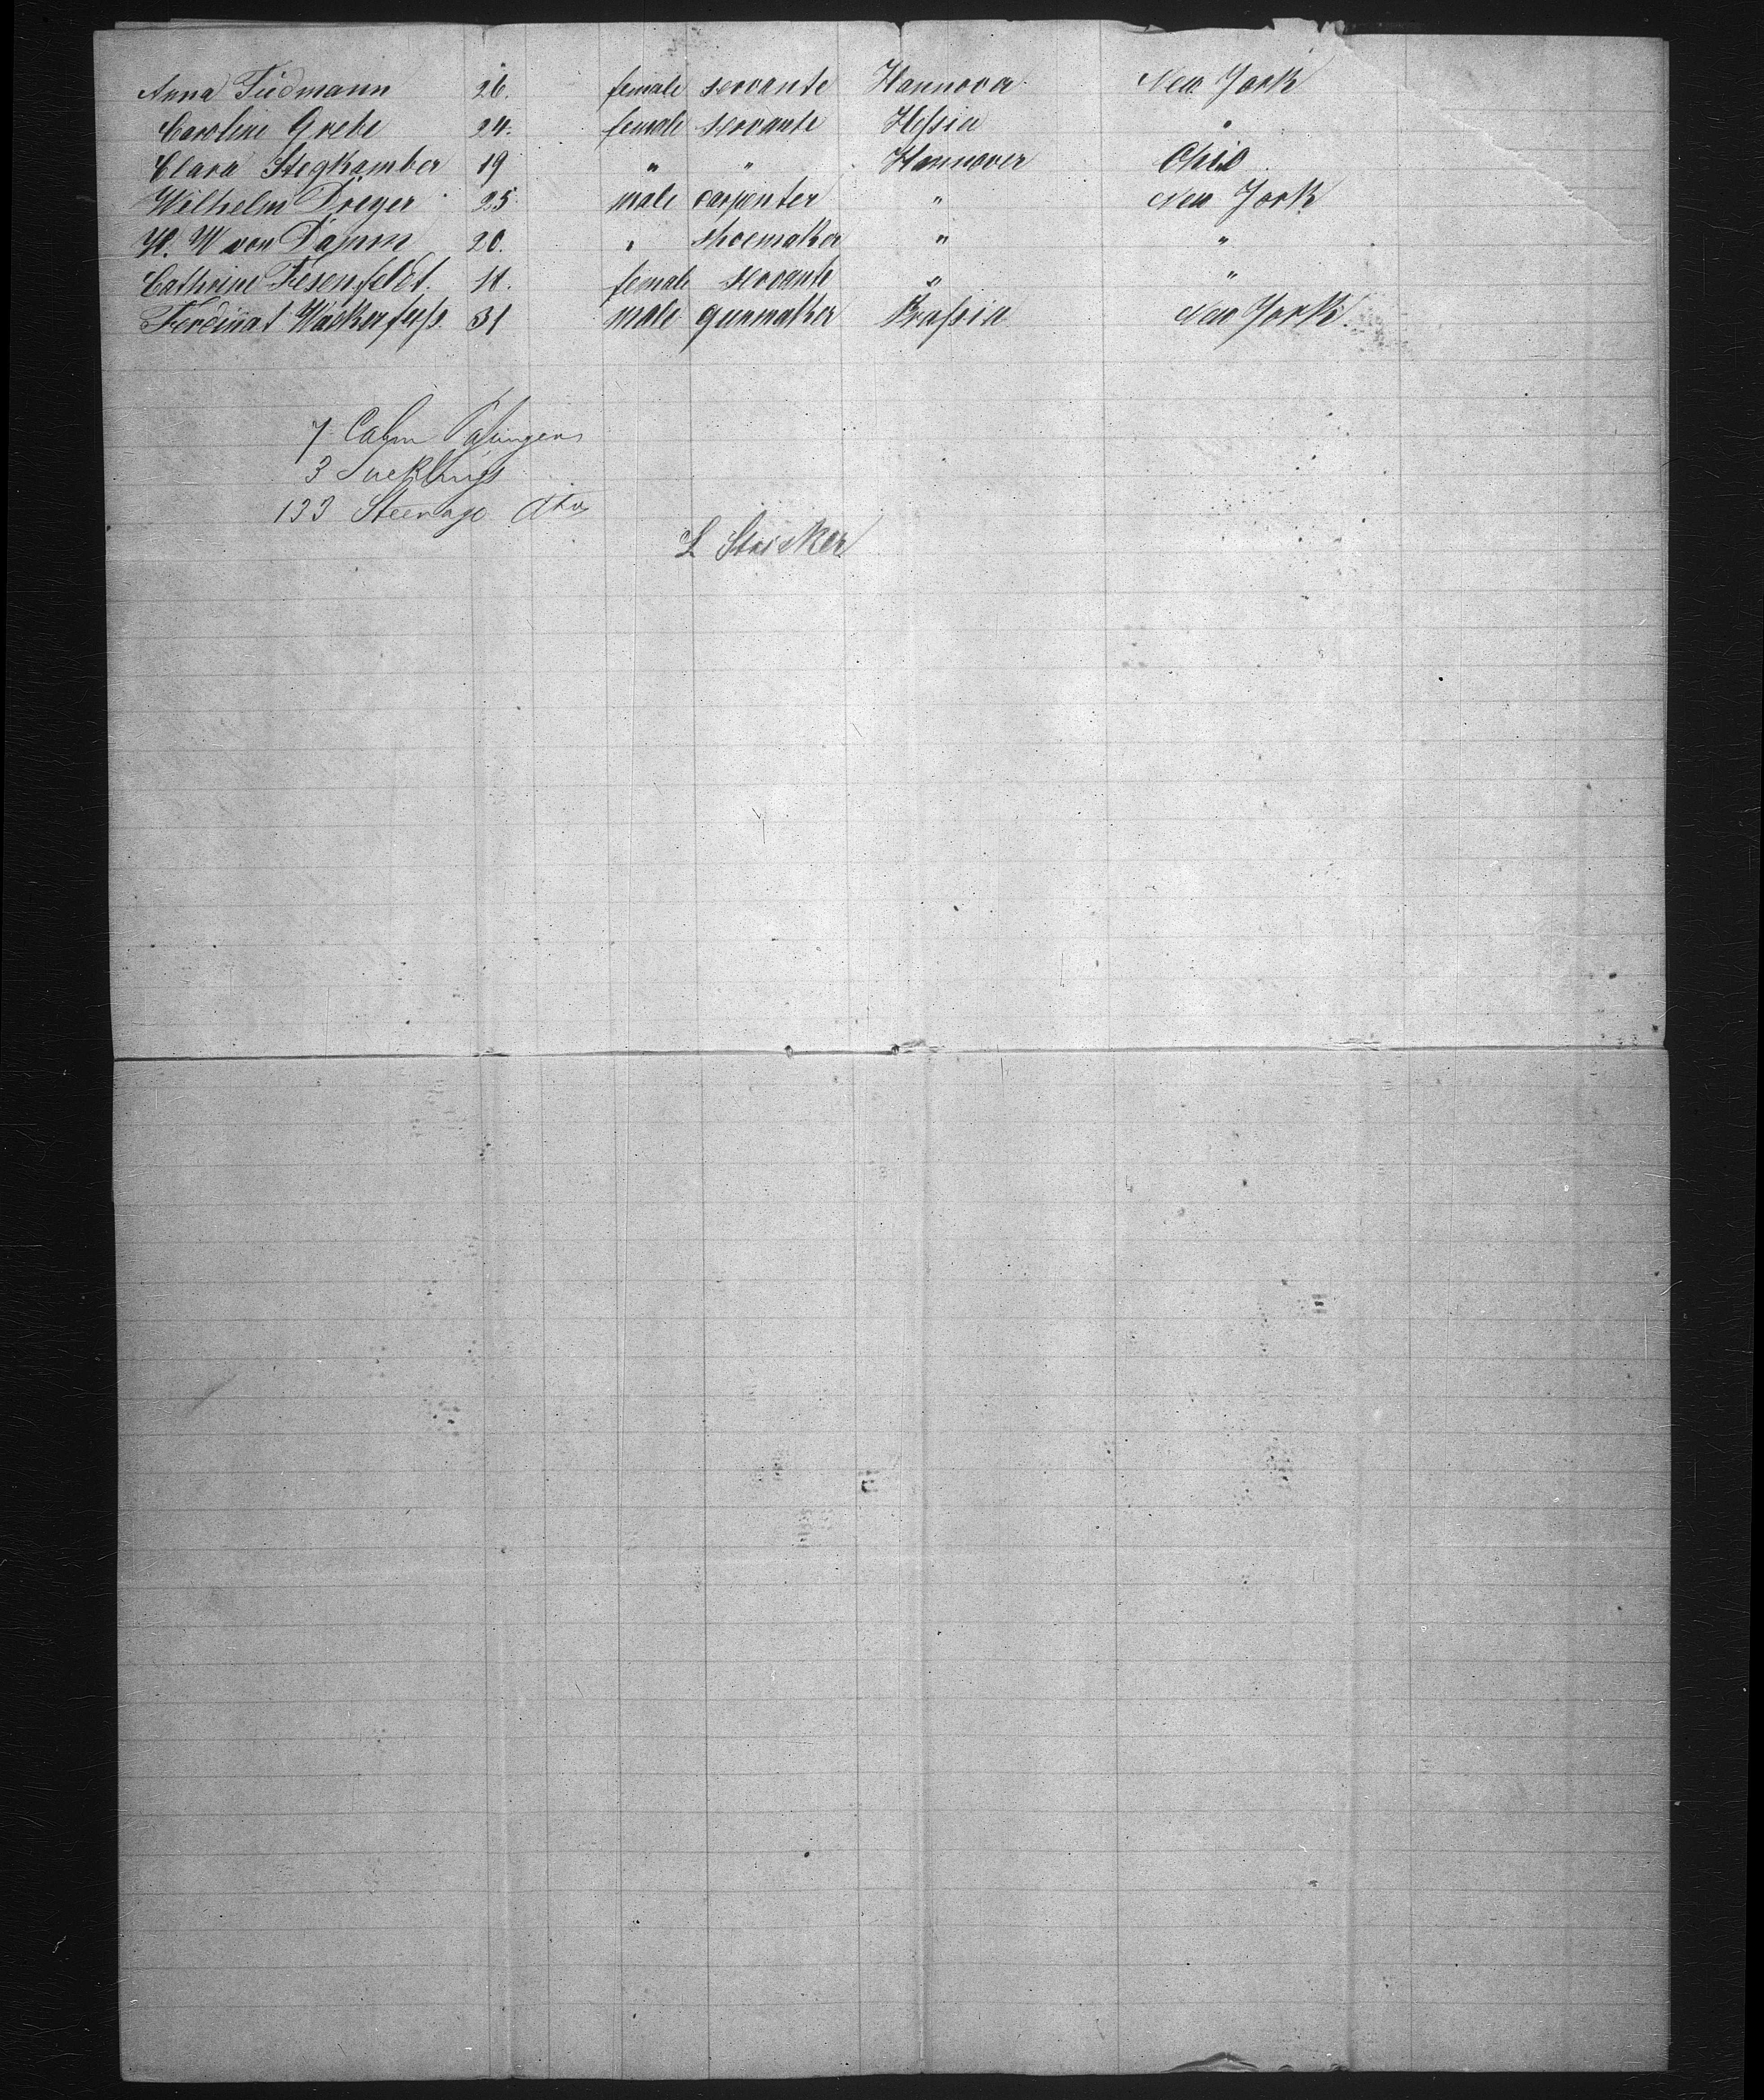 Anna Tiedmann 26. female servante Hannover New York
Caroline Grebe 24. female servante Heſsia "
Clara Stegkamber 19 " " Hannover Ohio
Wilhelm Dreyer 25 male carpenter " New York
H. W von Damm 20. " shoemaker " "
Cathrine Fesenfeldt. 18. female servante " "
Ferdinat Wackerfuſs. 31 male gunmaker Pruſsia New York.
7 Cabin Paſsengers
3 Sucklings
133 Steerage
L Stricker